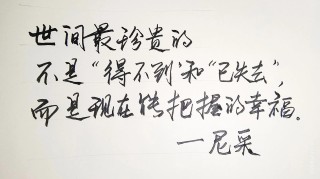 世间最珍贵的
不是“得不到”和“已失去”，
而是现在能把握的幸福。
一尼采